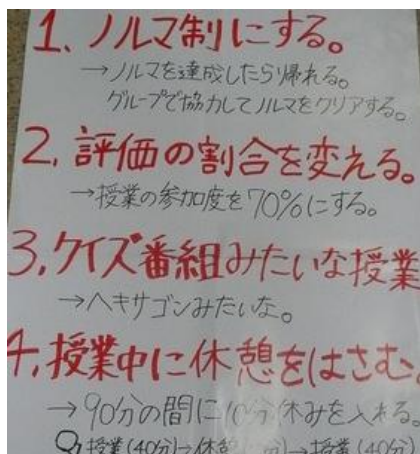 1、ノルマ制にする。
→ノルマを達成したら帰れる。
グループで協力してノルマをクリアする。
2、評価の割合を変える。
→授業の参加度を70%にする。
3、クイズ番組みたいな授業
→ヘキサゴンみたいな。
4、授業中に休憩をはさむ。
→90分の間に10分休みを入れる。
授業(40分)→休憩 分)→授業(40分)